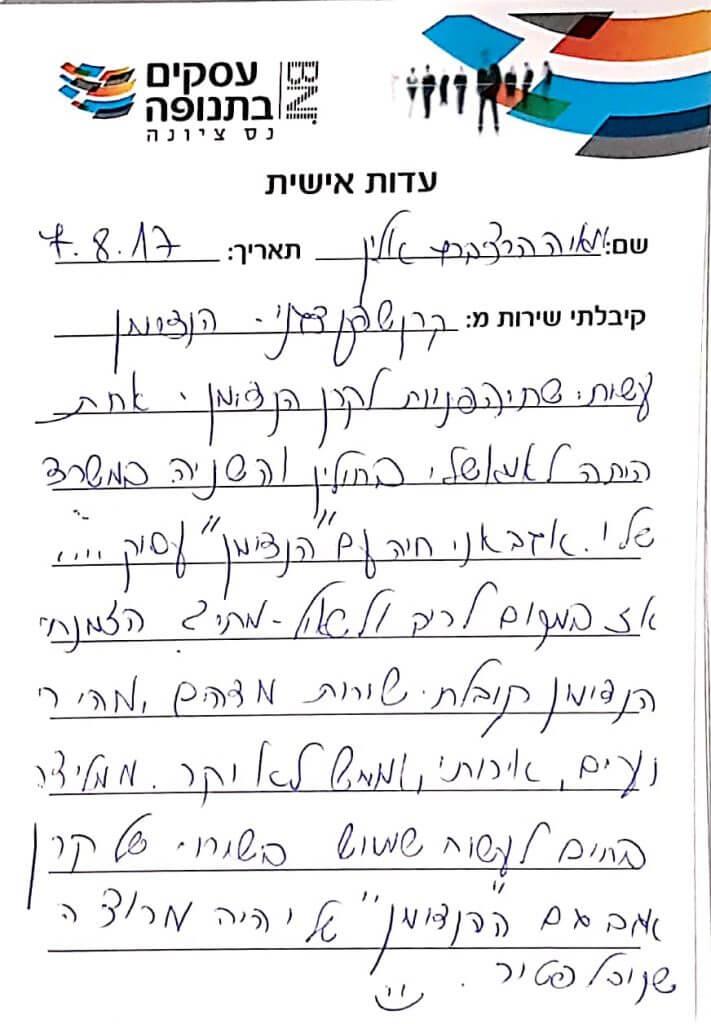 עסקים
בתנופה
BNI
נס ציונה
עדות אישית
שם: מאיה הרצברג אלין תאריך: 7.8.17
קיבלתי שירות מ: קרן הנדימן
עשיתי שתי פניות לקרן הנדימן - אחת
היתה לאמא שלי בחולין והשניה במשרד
שלי. אגב אני חיה עם "הנדימן" עסוק ....
אז במקום לריב ולשאול - מתי ? הזמנתי
הנדימן קיבלתי שירות מדהים, מהיר
נעים, איכותי, וממש לא יקר. ממליצה
בחום לעשות שימוש בשירותי של קרן
אגב גם ה"הנדימן" שלי היה מרוצה
שקיבל פטור.